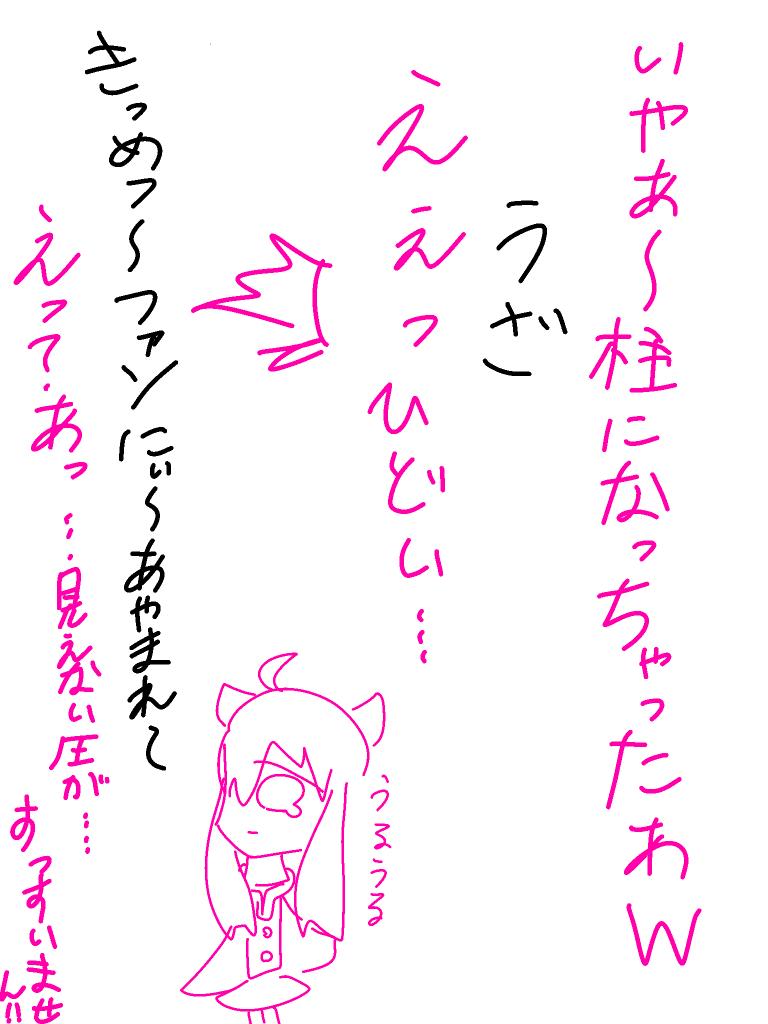 いやぁ〜柱になっちゃったぁw
うざ
えぇっひどい…
きっめつ〜ファンにぃ〜あやまれ〜
えって・あっ…見えない圧が…
すっすいません!!
うるうる